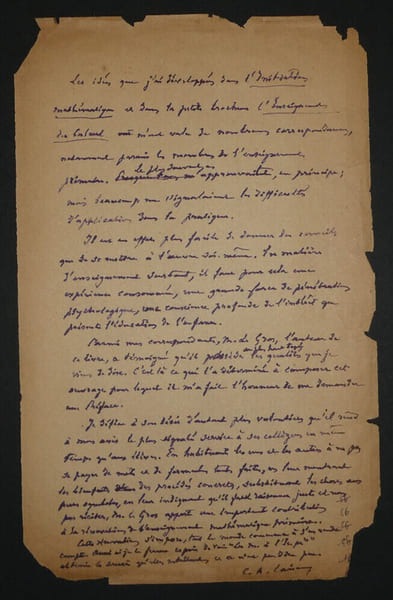 Les idées que j'ai développées dans l'Initiation
mathématique et dans la petite brochure l'Enseignement
du Calcul ont m'ont valu de nombreux correspondants,
notamment parmi les membres de l'enseignement
primaire. La plupart m'approuvaient, en principe;
mais beaucoup me signalaient les difficultés
d'application dans la pratique.
Il est en effet plus facile de donner des conseils
que de se mettre à l'œuvre soi-même. En matière
d'enseignement surtout, il faut pour cela une
expérience consommée, une grande force de pénétration
psychologique, une conscience profonde de l'intérêt que
présente l'éducation de l'enfance.
Parmi mes correspondants, M. de Gros, l'auteur de
ce livre, a témoigné qu'il possède les qualités que je
viens de dire. C'est là ce qui l'a déterminé à composer cet
ouvrage pour lequel il m'a fait l'honneur de me demander
une Préface.
Je défère à son désir d'autant plus volontiers qu'il rend
à mon avis le plus signalé service à ses collègues en même
temps qu'aux élèves. En habituant les uns et les autres à ne pas
se payer de mots et de formules toutes faites, en leur montrant
les bienfaits des procédés concrets, substituant les choses aux
purs symboles, en leur indiquant qu'il faut raisonner juste et non
pas réciter, M. de Gros apporte une importante contribution
à la rénovation de l'enseignement mathématique primaire.
Cette rénovation s'impose, tout le monde commence à s'en rendre
compte.
C. A. Laisant